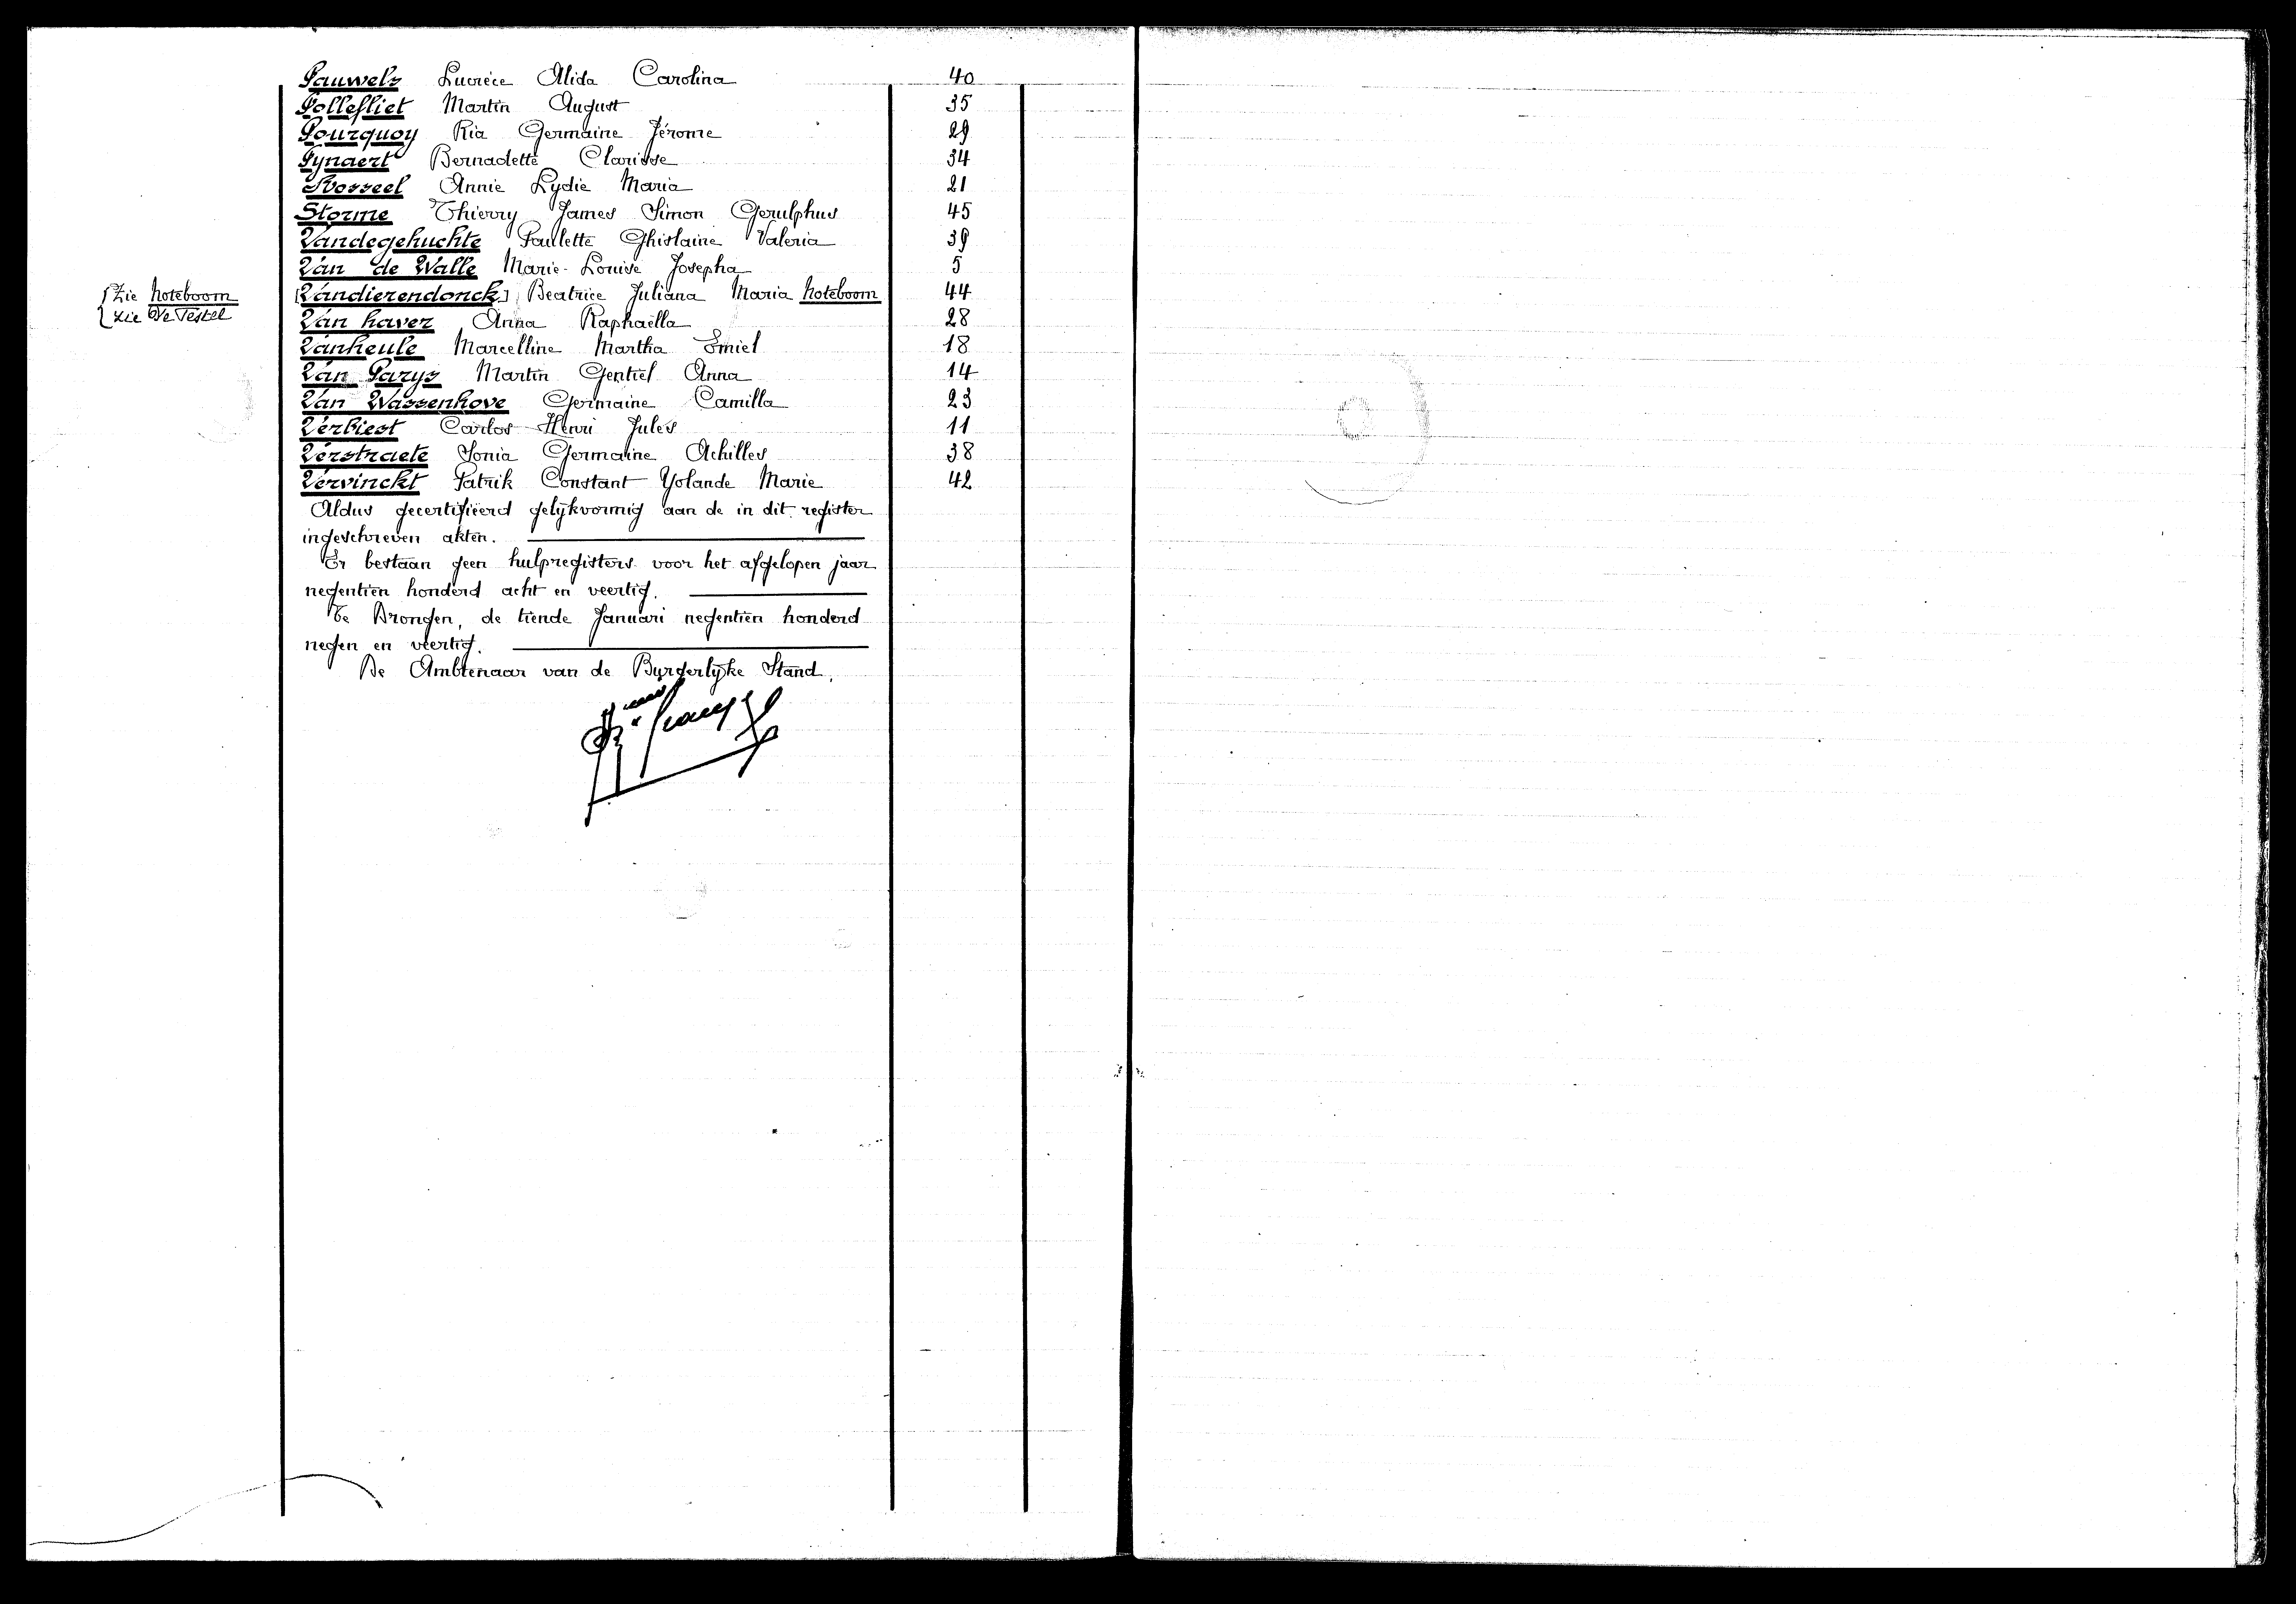 Pauwels Lucrèce Alida Carolina 40
Pollefliet Martin August 35
Pourquoy Ria Germaine Jérome 29
Pynaert Bernadette Clarisse 34
Rosseel Annie Lydie Maria 21
Storme Thierry James Simon Gerulphus 45
Vandegehuchte Paulette Ghislaine Valeria 39
Van de Walle Marie-Louise Josepha 5
{Zie Noteboom [Vandierendonck] Beatrice Juliana Maria Noteboom 44
zie De Testel Van haver Anna Raphaëlla 28
Vanheule Marcelline Martha Emiel 18
Van Parys Martin Gentiel Anna 14
Van Wassenhove Germaine Camilla 23
Verbiest Carlos Henri Jules 11
Verstraete Sonia Germaine Achilles 38
Vervinckt Patrik Constant Yolande Marie 42
Aldus gecertifieerd gelijkvormig aan de in dit register
ingeschreven akten.
Er bestaan geen hulpregisters voor het afgelopen jaar
negentien honderd acht en veertig.
Te Drongen, de tiende Januari negentien honderd
negen en veertig.
De Ambtenaar van de Burgerlijke Stand.